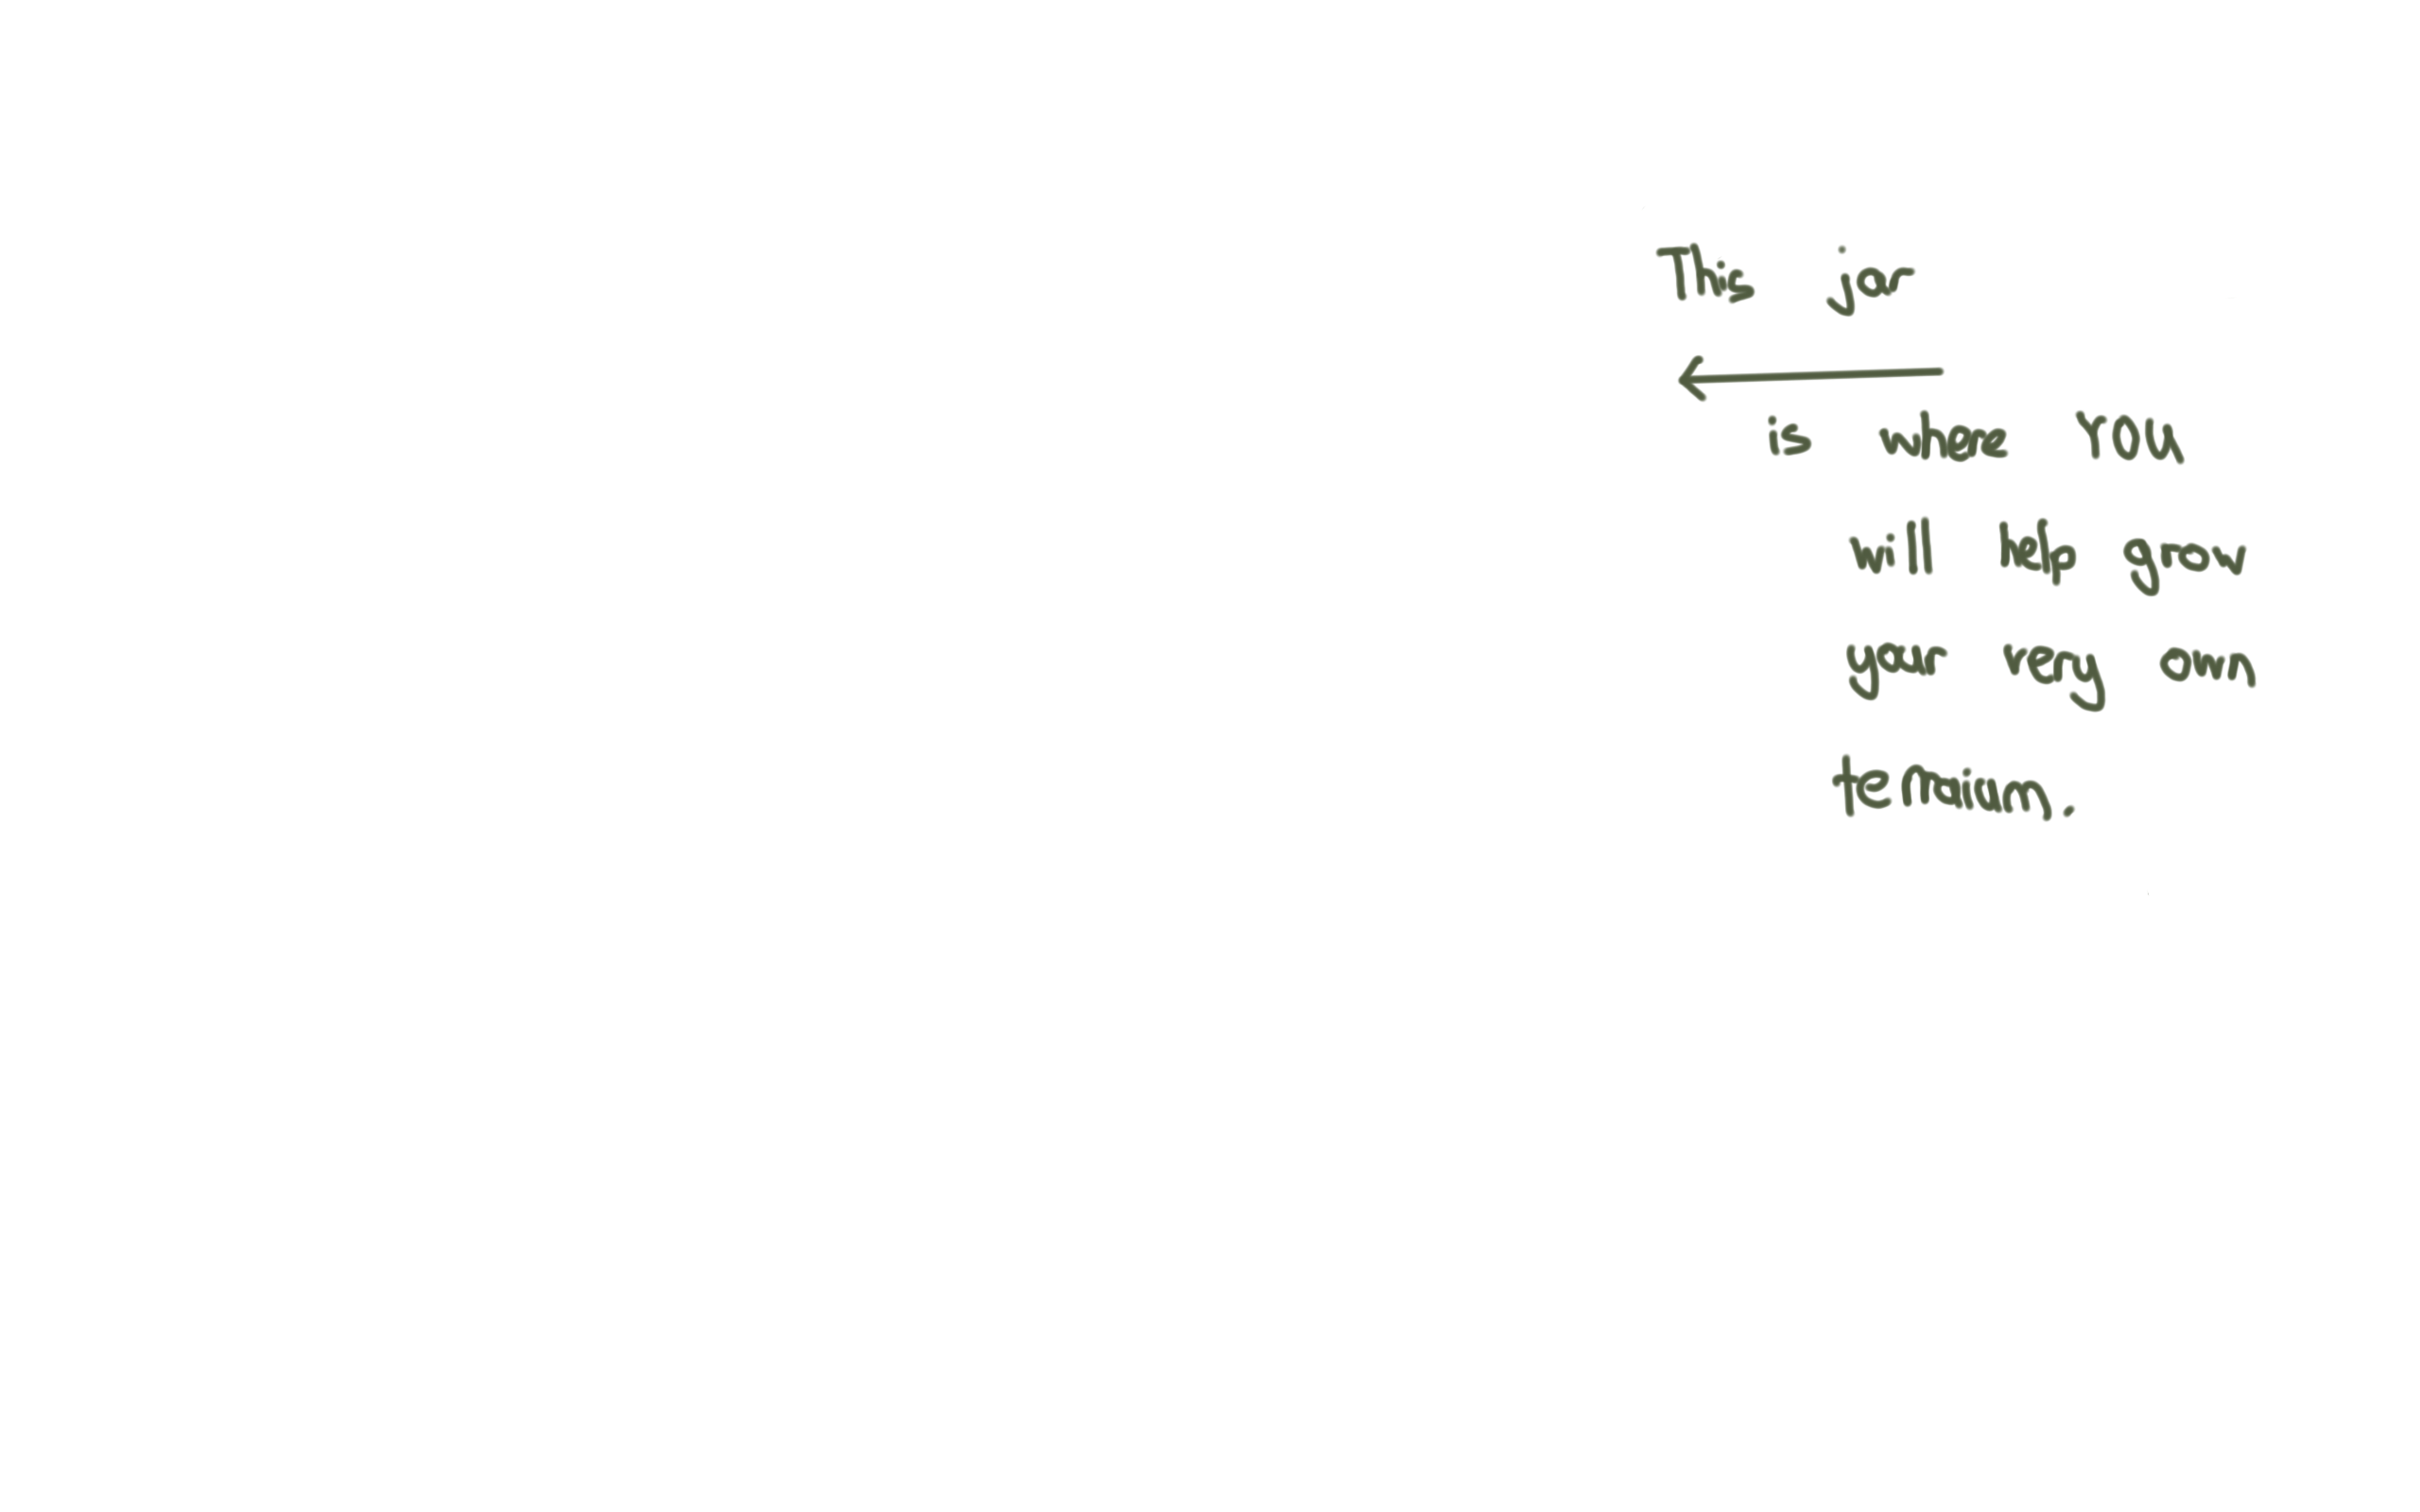 This jar
is where YOU
will help grow
your very own
terraium.